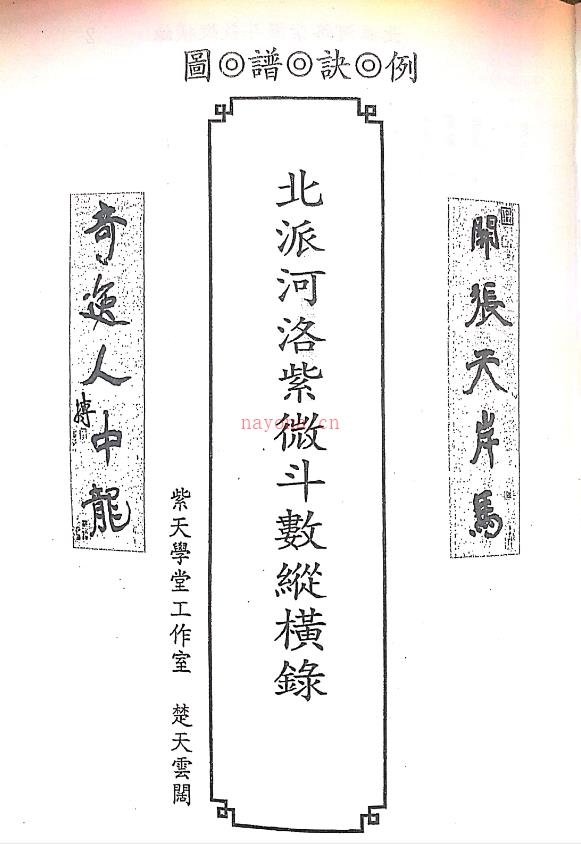 圖◎譜◎訣◎例
開張天岸馬
北派河洛紫微斗數縱橫錄
nayona.cn
紫天學堂工作室 楚天雲闊
奇逸人中龍
摶